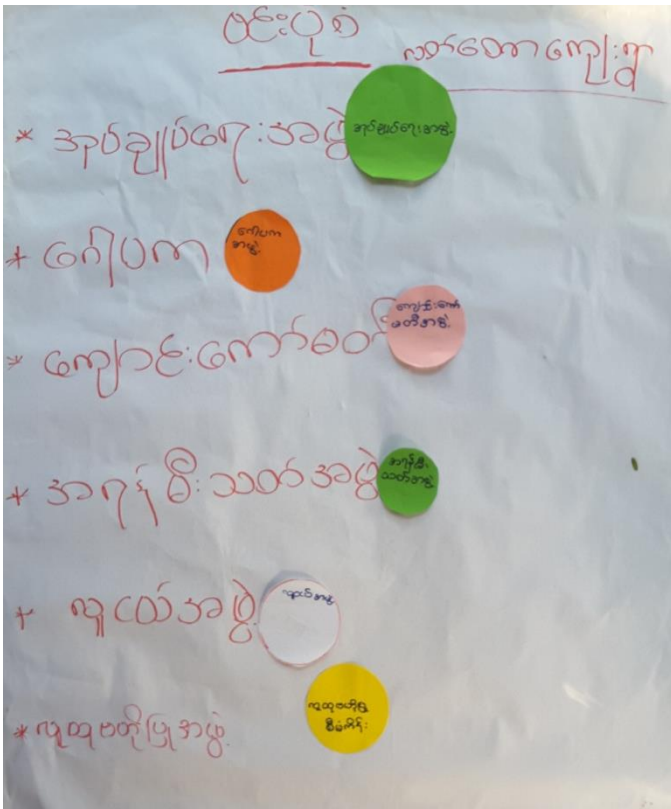 ဗင်းပုံစံ
လတ်တောကျေးရွာ
* အုပ်ချုပ်ရေးအဖွဲ့
အုပ်ချုပ်ရေးအဖွဲ့
* ဂေါပက
ဂေါပက
အဖွဲ့
* ကျောင်းကော်မတီ
ကျောင်းကော်
မတီအဖွဲ့
* အရန်မီးသတ်အဖွဲ့
အရန်မီး
သတ်အဖွဲ့
+ လူငယ်အဖွဲ့
လူငယ်အဖွဲ့
* လူထုဗဟိုပြုအဖွဲ့
လူထုဗဟိုပြု
စီမံကိန်း